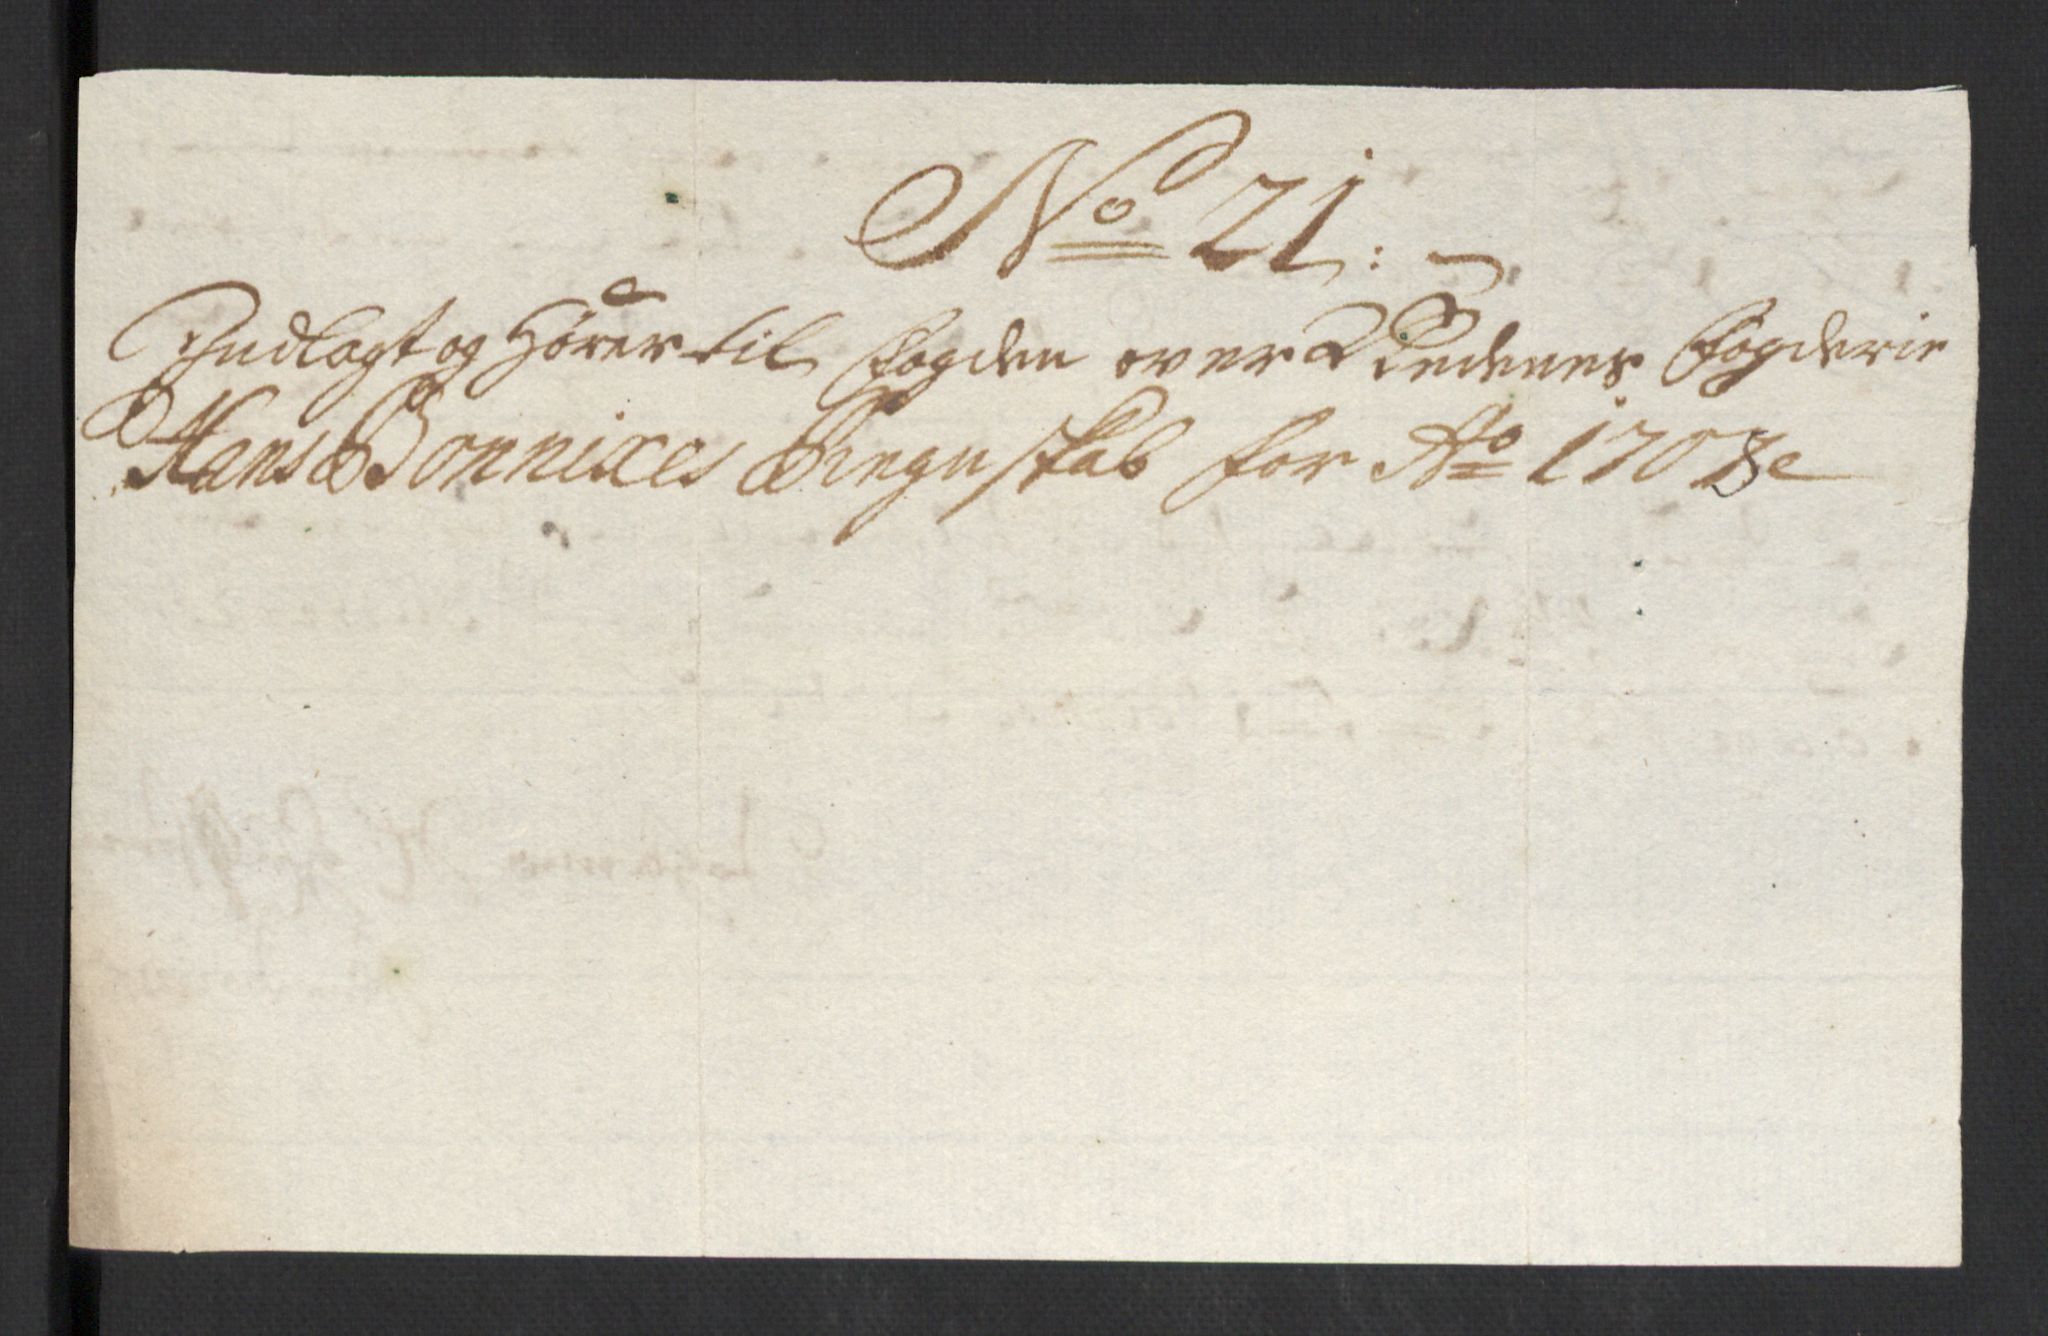 No 21:
Indlagt og Hører til fogden over Nedenes fogderie
Hans Bonnixes Regnskab for Ao 1708